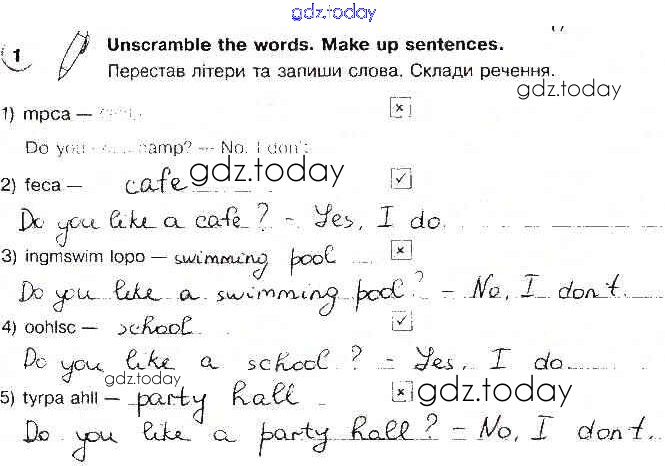 gdz.today
1
Unscramble the words. Make up sentences.
Перестав літери та запиши слова. Склади речення.
gdz.today
1) mpca —
Do you camp? — No, I don't
gdz.today
2) feca — cafe
Do you like a cafe? – Yes, I do.
3) ingmswim lopo — swimming pool
Do you like a swimming pool? – No, I don't.
4) oohlsc — school
Do you like a school? – Yes, I do
gdz.today
5) tyrpa ahll — party hall
gdz.today
Do you like a party hall? – No, I don't.